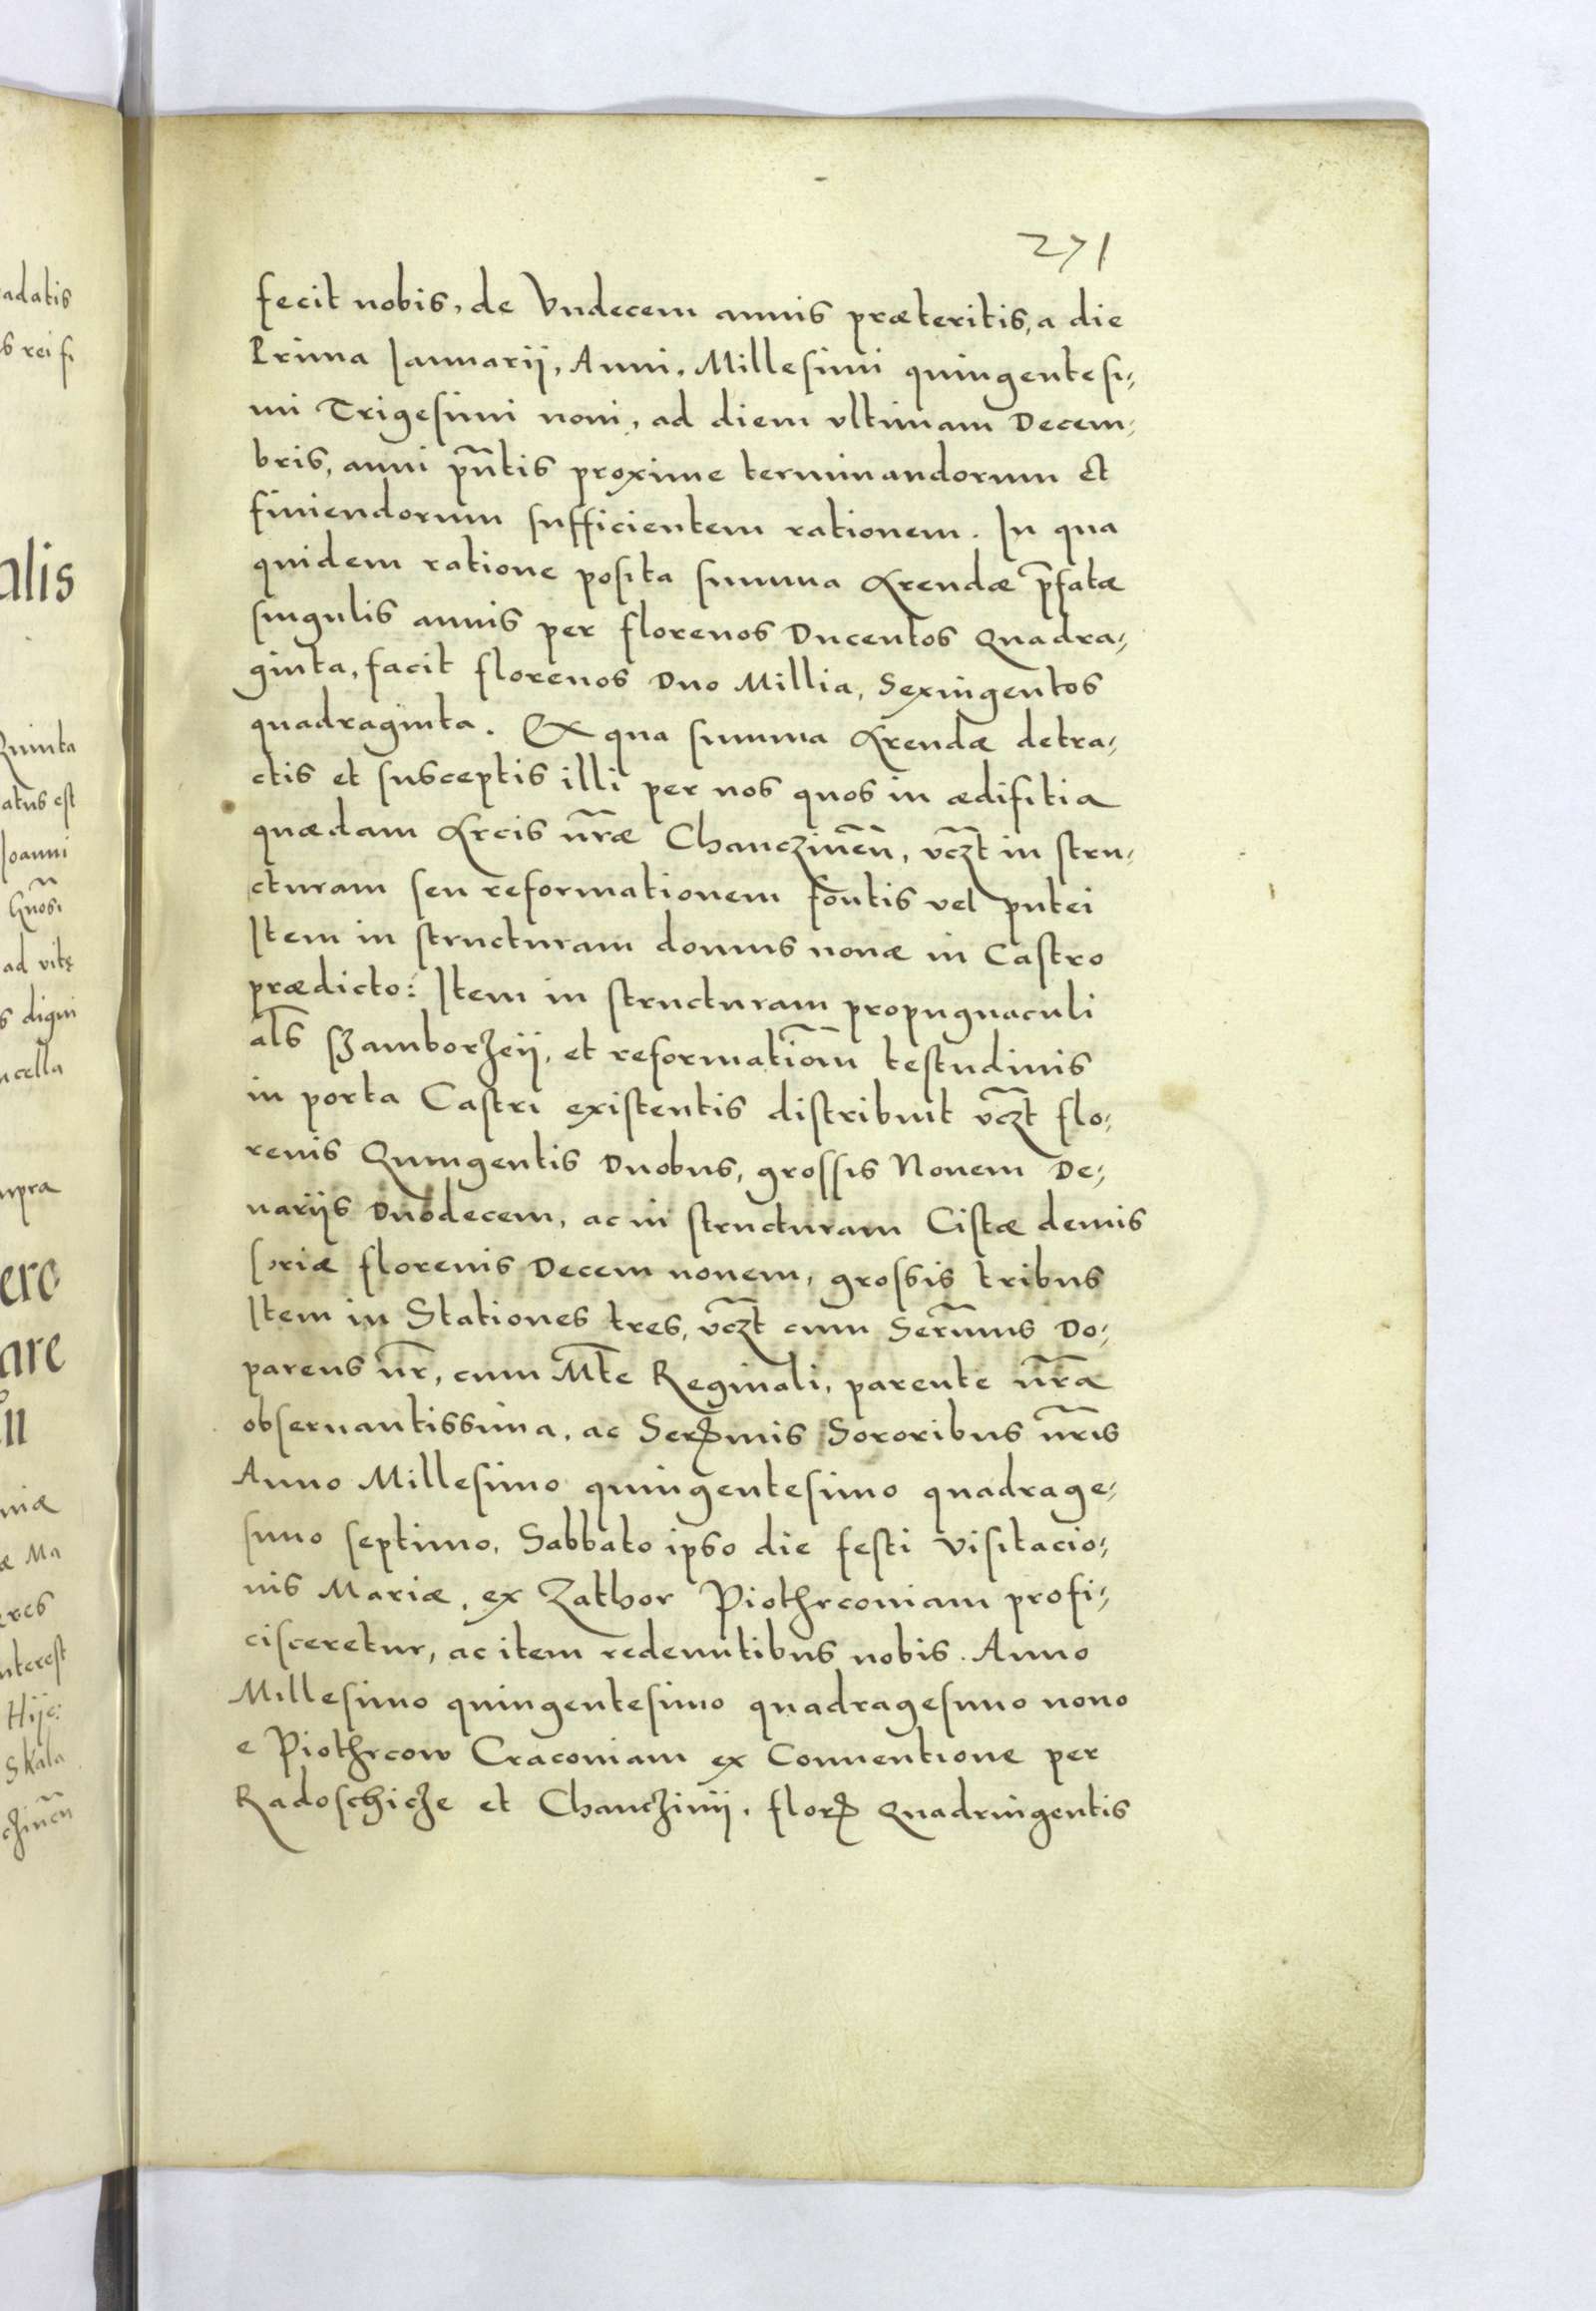 271
fecit nobis, de Vndecem annis præteritis, a die
Prima Ianuarij, Anni, Millesimi quingentesi-
mi Trigesimi noni, ad diem vltimam Decem-
bris, anni pñtis proxime terminandorum et
finiendorum sufficientem rationem. In qua
quidem ratione posita summa Arendæ p̃fatæ
singulis annis per florenos Ducentos Quadra-
ginta, facit florenos Duo Millia, Sexingentos
quadraginta. Ex qua summa Arendæ detra-
ctis et susceptis illi per nos quos in ædifitia
quædam Arcis nr̃æ Chanczineñ, vcz̃t in stru-
cturam seu reformationem fontis vel putei
Item in structuram domus nouæ in Castro
prædicto: Item in structuram propugnaculi
al̃s szamborzeij, et reformatiom̃ testudinis
in porta Castri existentis distribuit vcz̃t flo-
renis Quingentis Duobus, grossis Nouem De-
narijs Duodecem, ac in structuram Cistæ demis
soriæ florenis Decem nouem, grossis tribus
Item in Stationes tres, vcz̃t cum Serm̃us Do-
parens nr̃, cum Mt̃e Reginali, parente nr̃a
obseruantissima, ac Serꝫmis Sororibus nr̃is
Anno Millesimo quingentesimo quadrage-
simo septimo, Sabbato ipso die festi Visitacio-
nis Mariæ, ex Zathor Piothrcouiam profi-
cisceretur, ac item redeuntibus nobis. Anno
Millesimo quingentesimo quadragesimo nono
e Piothrcow Cracouiam ex Conuentione per
Radoschicze et Chanczinij. florꝫ Quadringentis
adatis
s rei fi
alis
Quinta
atus est
Joanni
Gño̅si
ad vitę
s digni
ncella
upra
ero
are
niæ
æ Ma
nterest
Hije:
Skala
czineñ